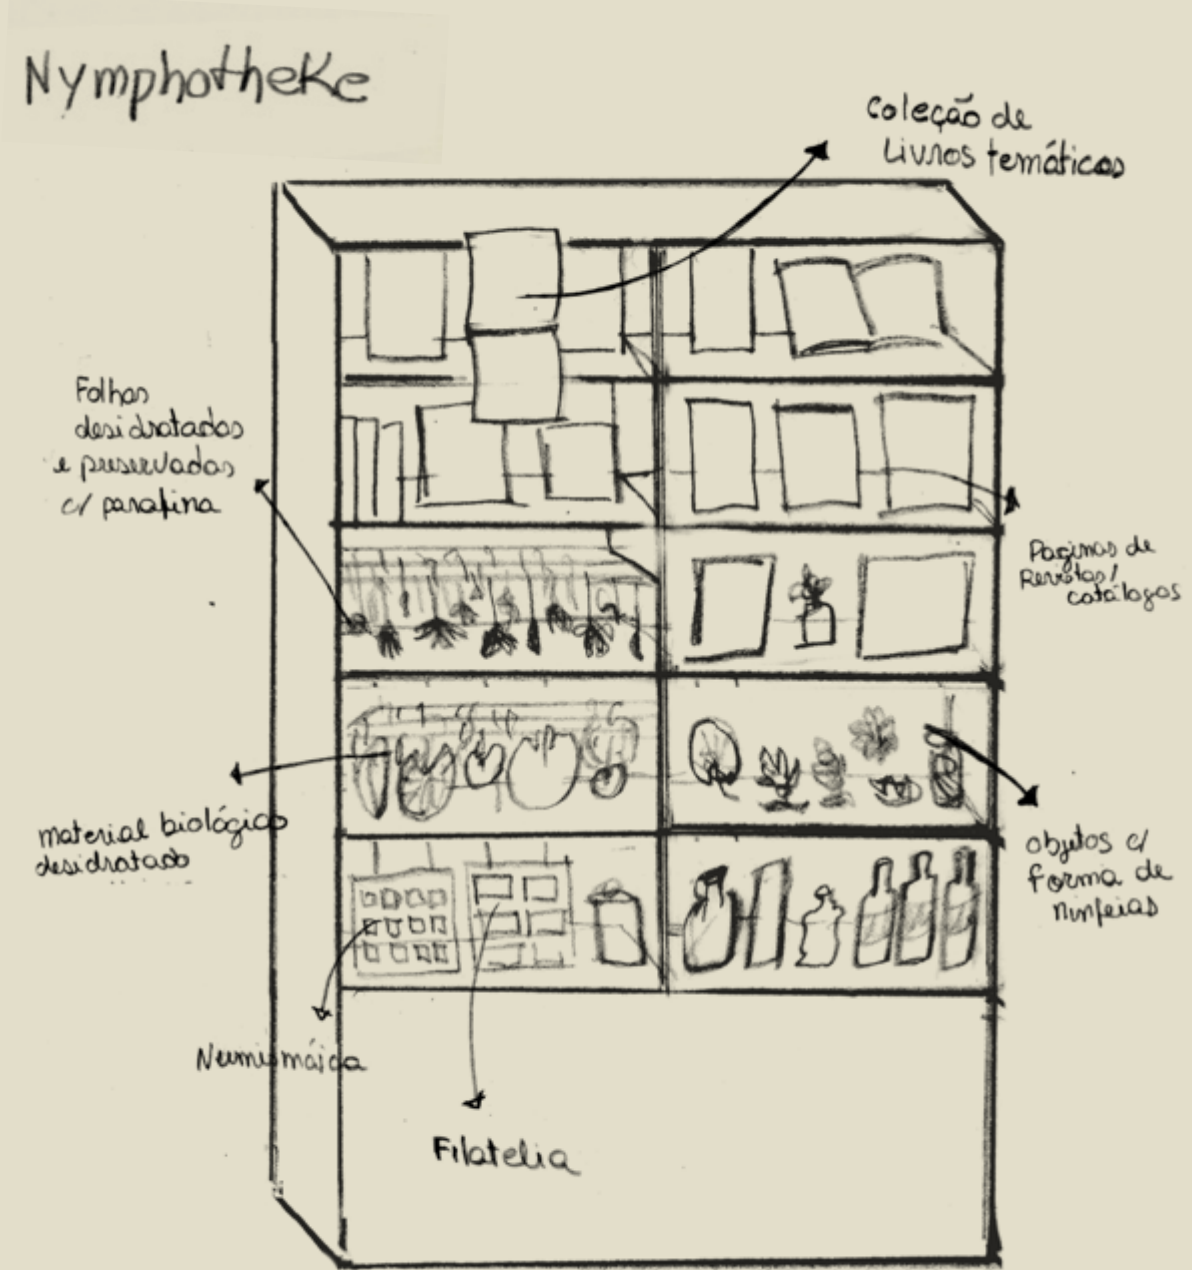 Nymphotheke
Coleção de
Livros temáticos
Folhas
desidratadas
e preservadas
c/ parafina
Paginas de
Revistas/
catálogos
material biológico
desidratado
objetos c/
forma de
ninfeias
Numismáica
Filatelia